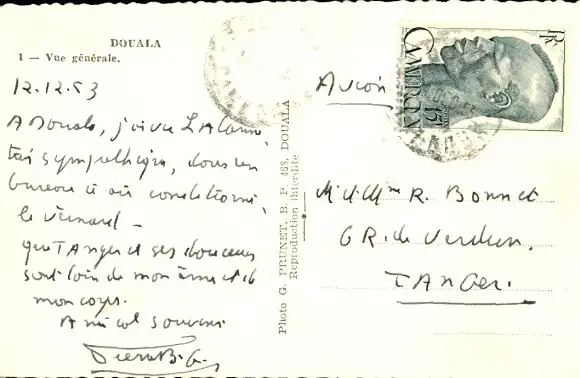 DOUALA
1 — Vue générale.
12.12.53
A Douala, j'ai vu
très sympathique, dans un
bureau à air conditionné,
le
que TANger et ses douceurs
sont loin de mon âme et de
mon corps.
Amical souvenir
Photo G. PRUNET, B. P. 468, DOUALA
Reproduction interdite
RF
CAMEROUN
15F
Avion
M et Mme R. Bonnet
6 R. de Verdun.
TANGer.